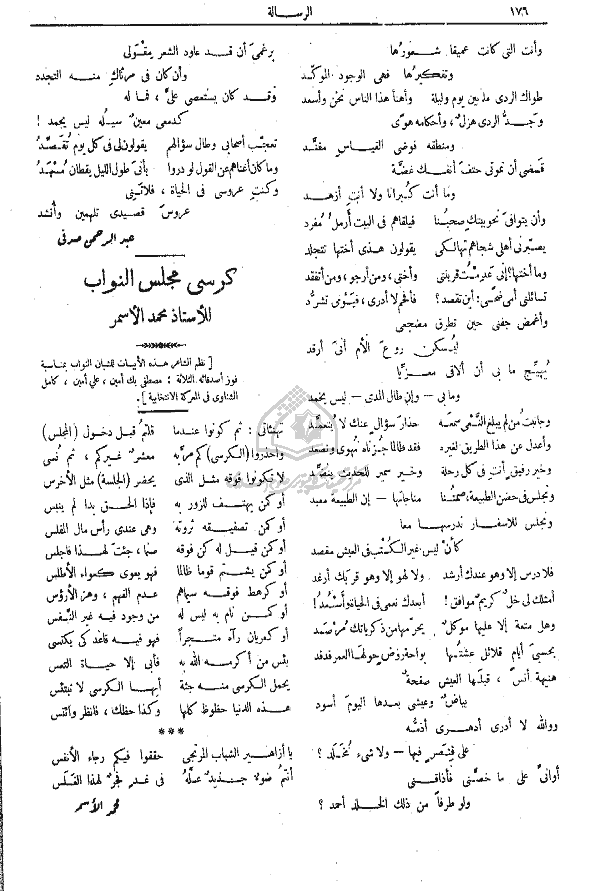 ١٧٦ الرسالة
وأنت التي كانت عميقا شعورُها
وتفكيرُها فهى الوجود الموكّد
طواك الردى مابين يوم وليلة وأهنأ هذا الناس نحن وأسعد
وجدُّ الردى هزلٌ ، وأحكامه هوًى
ومنطقه فوضى القياس مفنّد
قضى أن تموتى حتفَ أنفك غضّة
وما أنت كُبرانا ولا أنتِ أزهد
وأن يتوافى نحو بيتك صحبُنا فيلقاهم فى البيت أرملُ مُفرد
يصبّرنى أهلى شجاهم تهالكى يقولون هذى أختها تتجلد
وما أختها؟ إنى عدمتُ قرينتى وأختى ، ومن أرجو ، ومن أتفقد
تسائلنى أمى ضحًى : أين تقصد؟ فأفحم لا أدرى ، فيَنوى تشرُّد
وأغمض جفنى حين تطرق مضجعى
ليسكن روع الأم أنىَ أرقد
يُهيّج ما بى أن ألاقى معزّيا
وما بى — وإن طال المدى — ليس يخمد
وجانبتُ من لم يبلغ النَّعىُ سمعَه حذارَ سؤال عنك لا يتعمّد
وأعدل عن هذا الطريق لغيره فقد طالما جزناه نهوى ونصعد
وخير رفيق أنتِ فى كل رحلة وخير سمير للحديث ينضّد
ونجلس فى حضن الطبيعة، صمتُنا مناجاتها — إن الطبيعة معبد
ونجلس للأسفار ندرسها معا
كأنْ ليس غير الكُتْب فى العيش مقصد
فلا درس إلا وهو عندك أرشد ولا لهو إلا وهو قربك أرغد
أمثلك لى خلٌ كريم موافق! أبعدك نعمى فى الحياة وأثمُد!
وهل متعة إلا عليها موكلٌ يحرّمها من ذكرياتك مُرصَد
بحسبى أيام قلائل عشتُها بواحة روض حولها العمر فدفد
هنيهة أنس ، قبلَها العيش صفحةٌ
بياضٌ وعيشى بعدها اليومَ أسود
ووالله لا أدرى أدهرى أذمُّه
على قِصَرٍ فيها — ولا شىء مُخلَد ؟
أوانىَ على ما خصّنى فأذاقنى
ولو طرفاً من ذلك الخلد أحمد ؟
برغمىَ أن قد عاود الشعر مِقْولى
وأن كان فى مرثاكِ منه التجدد
وقد كان يستعصى علىَّ ، فما له
كدمعى معينٌ سيلُه ليس يجمد !
تعجّبَ أصحابى وطال سؤالهم يقولون لى فى كل يوم تُقصِّدُ
وما كان أغناهم عن القول لو دروا بأنىَ طول الليل يقظان مُسهَّد
وكنتِ عروسى فى الحياة ، فلانَنِى
عروسَ قصيدى تلهمين وأنشد
عبد الرحمن صدقى
كرسى مجلس النواب
للأستاذ محمد الأسمر
[ نظم الشاعر هذه الأبيات للشبان النواب بمناسبة
فوز أصدقائه الثلاثة : مصطفى بك أمين ، على أمين ، كامل
الشناوى فى المعركة الانتخابية ] .
تهنئاتى : نم كونوا عندما قلتمُ قبل دخولى (المجلس)
واحذروا (الكرسى) كم مرّ به معشرٌ غيركم ، نم نُسى
لا تكونوا فوقه مثل الذى يحضر (الجلسة) مثل الأخرس
أو كمن يهتف للزور به فإذا الحق بدا لم ينبس
أو كمن تصفيقه ثروتُه وهى عندى رأس مال المفلس
أو كمن قيل له كن فوقه صنما ، جئت لهذا فاجلس
أو كمن يشتم قوما ظالما فهو يعوى كعواء الأطلس
أو كرهط فوقه سيماهمُ عدم الفهم ، وهز الأرؤس
أو كمن نام به ليس له من وجود فيه غير النَّفَس
أو كعريان رآه متجراً فهو فيه قاعد كى يكتسى
بئس من أكرمه الله به فأبى إلا حياة التعس
يحمل الكرسى منه جثة أيها الكرسى لا تبتئس
هذه الدنيا حظوظ كلها وكذا حظك ، فانظر وائتس
***
يا أزاهير الشباب المرتجى حققوا فيكم رجاء الأنفس
أنتمُ ضوءٌ جديدٌ علّه فى غدٍ فجرٌ لهذا الغلَس
محمد الأسمر